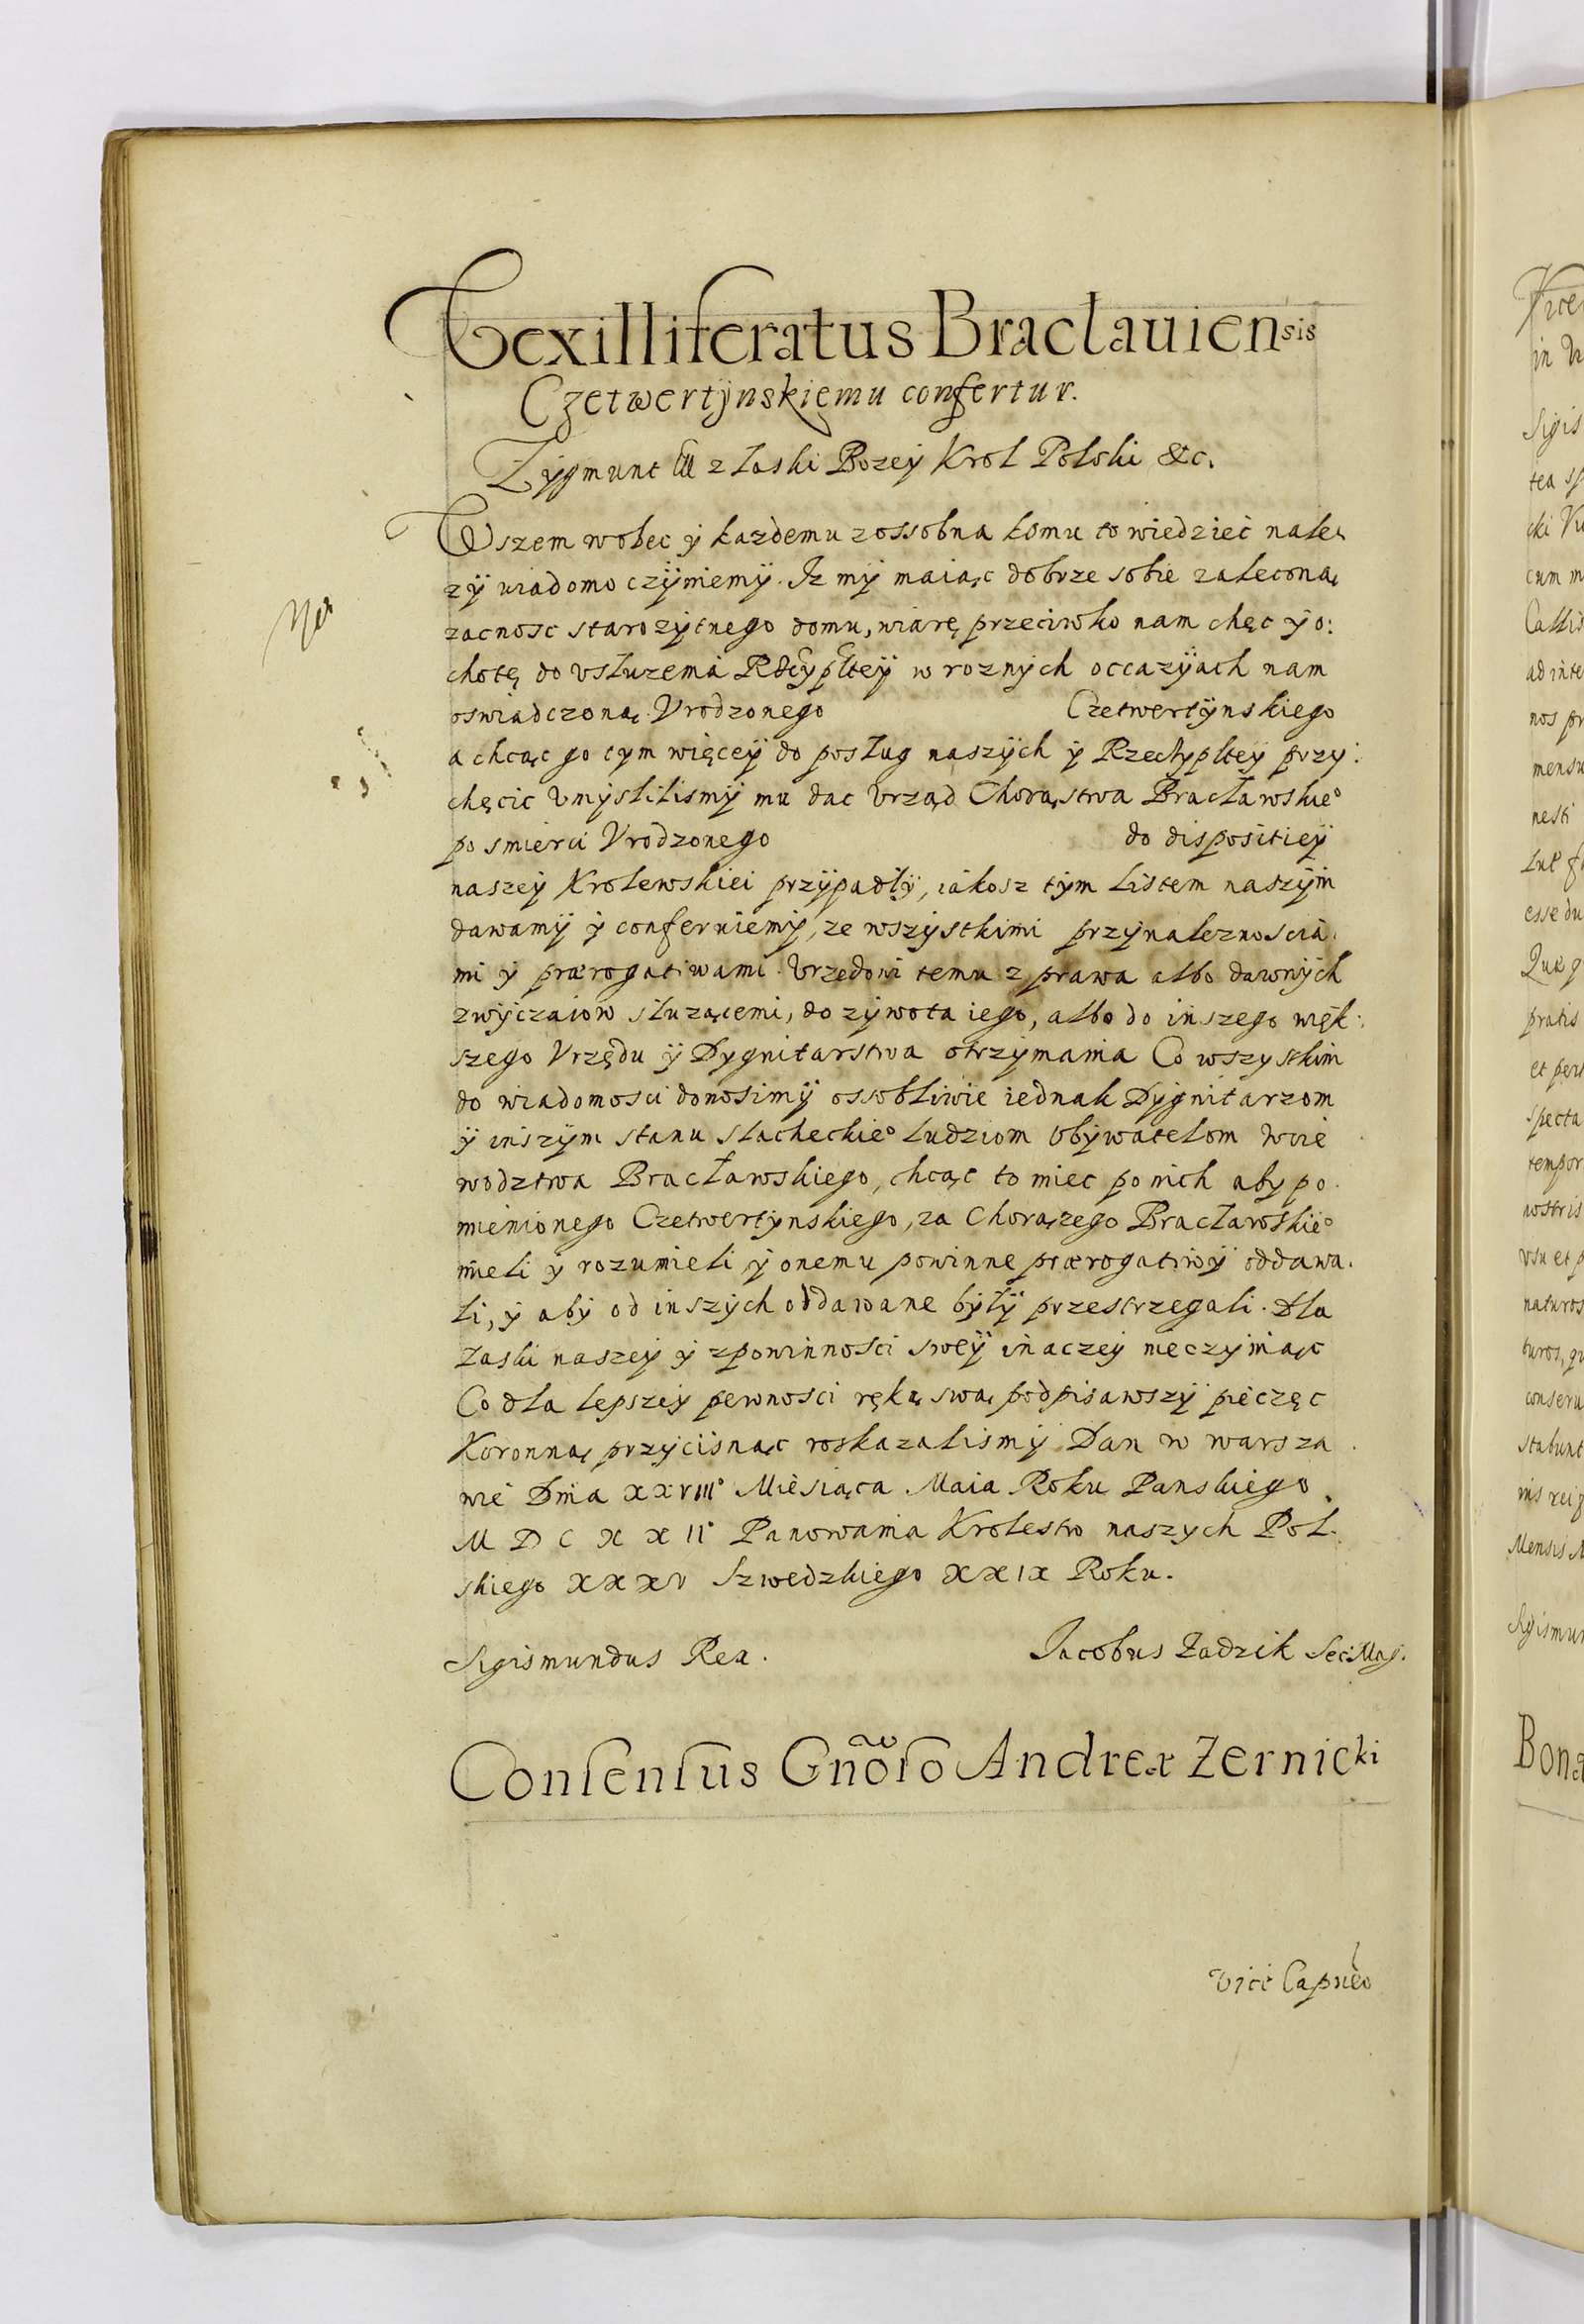 Vexilliferatus Braclauiensis
Czetwertÿnskiemu confertur.
Zÿgmunt III z łaski Bozeÿ Krol Polski &c.
Wszem wobec ÿ kazdemu zossobna komu to wiedzieć nale
zÿ wiadomo czÿniemÿ. Iz mÿ maiąc dobrze sobie zaleconą
zacnosc starozÿtnego domu, wiarę przeciwko nam chęc ÿ o:
chotę do vsłuzenia Rzeÿplteÿ w roznÿch occazÿach nam
oswiadczoną Vrodzonego Czetwertÿnskiego
a chcąc go tym więceÿ do posług naszÿch ÿ Rzectÿplteÿ przÿ:
chęcic vmÿslilismÿ mu dac vrząd Chorąstwa Bracławskieo
po smierci Vrodzonego do dispositieÿ
naszeÿ Krolewskiei przÿpadłÿ, iakosz tÿm listem naszÿm
dawamÿ ÿ conferuiemÿ, ze wszÿstkimi przÿnaleznoscia.
mi ÿ prærogatiwami vrzędowi temu z prawa albo dawnÿch
zwÿczaiow słuzącemi, do zÿwota iego, albo do inszego więk:
szego Vrzędu ÿ Dÿgnitarstwa otrzÿmania Co wszÿstkim
do wiadomosci donosimÿ ossobliwie iednak Dÿgnitarzom
ÿ inszÿm stanu slacheckieo ludziom obÿwatelom Woie
wodztwa Bracławskiego, chcąc to miec po nich abÿ po.
mienionego Czetwertÿnskiego, za Chorązego Bracławskieo
mieli ÿ rozumieli ÿ onemu powinne prærogatiwÿ oddawa.
li, ÿ abÿ od inszÿch oddawane bÿłÿ przestrzegali. Dla
łaski naszeÿ ÿ zpowinności sweÿ inaczeÿ nieczÿniąc
Co dla lepszeÿ pewnosci ręką swą podpisawszÿ pieczęc
Koronną przÿcisnąc roskazalismÿ Dan w warsza.
wie Dnia XXVIIIo Miesiąca Maia Roku Panskiego
M D C X X IIo Panowania Krolestw naszych Pol.
skiego XXXV Szwedzkiego XXIX Roku.
Sigismundus Rex. Jacobus Zadzik Sec: Maj.
Consensus Gnoso Andreæ Zernicki
vice Capneo
Vice
in
Sigis
tea
cki
cum m
ad inte
nos pr
mensu
nesti
esse du
pratis
et per
specta
tempor
nostris
vsu et p
naturos
turos, qu
conseru
stabunt
nis reip
Mensis M
Sigismun
Bona